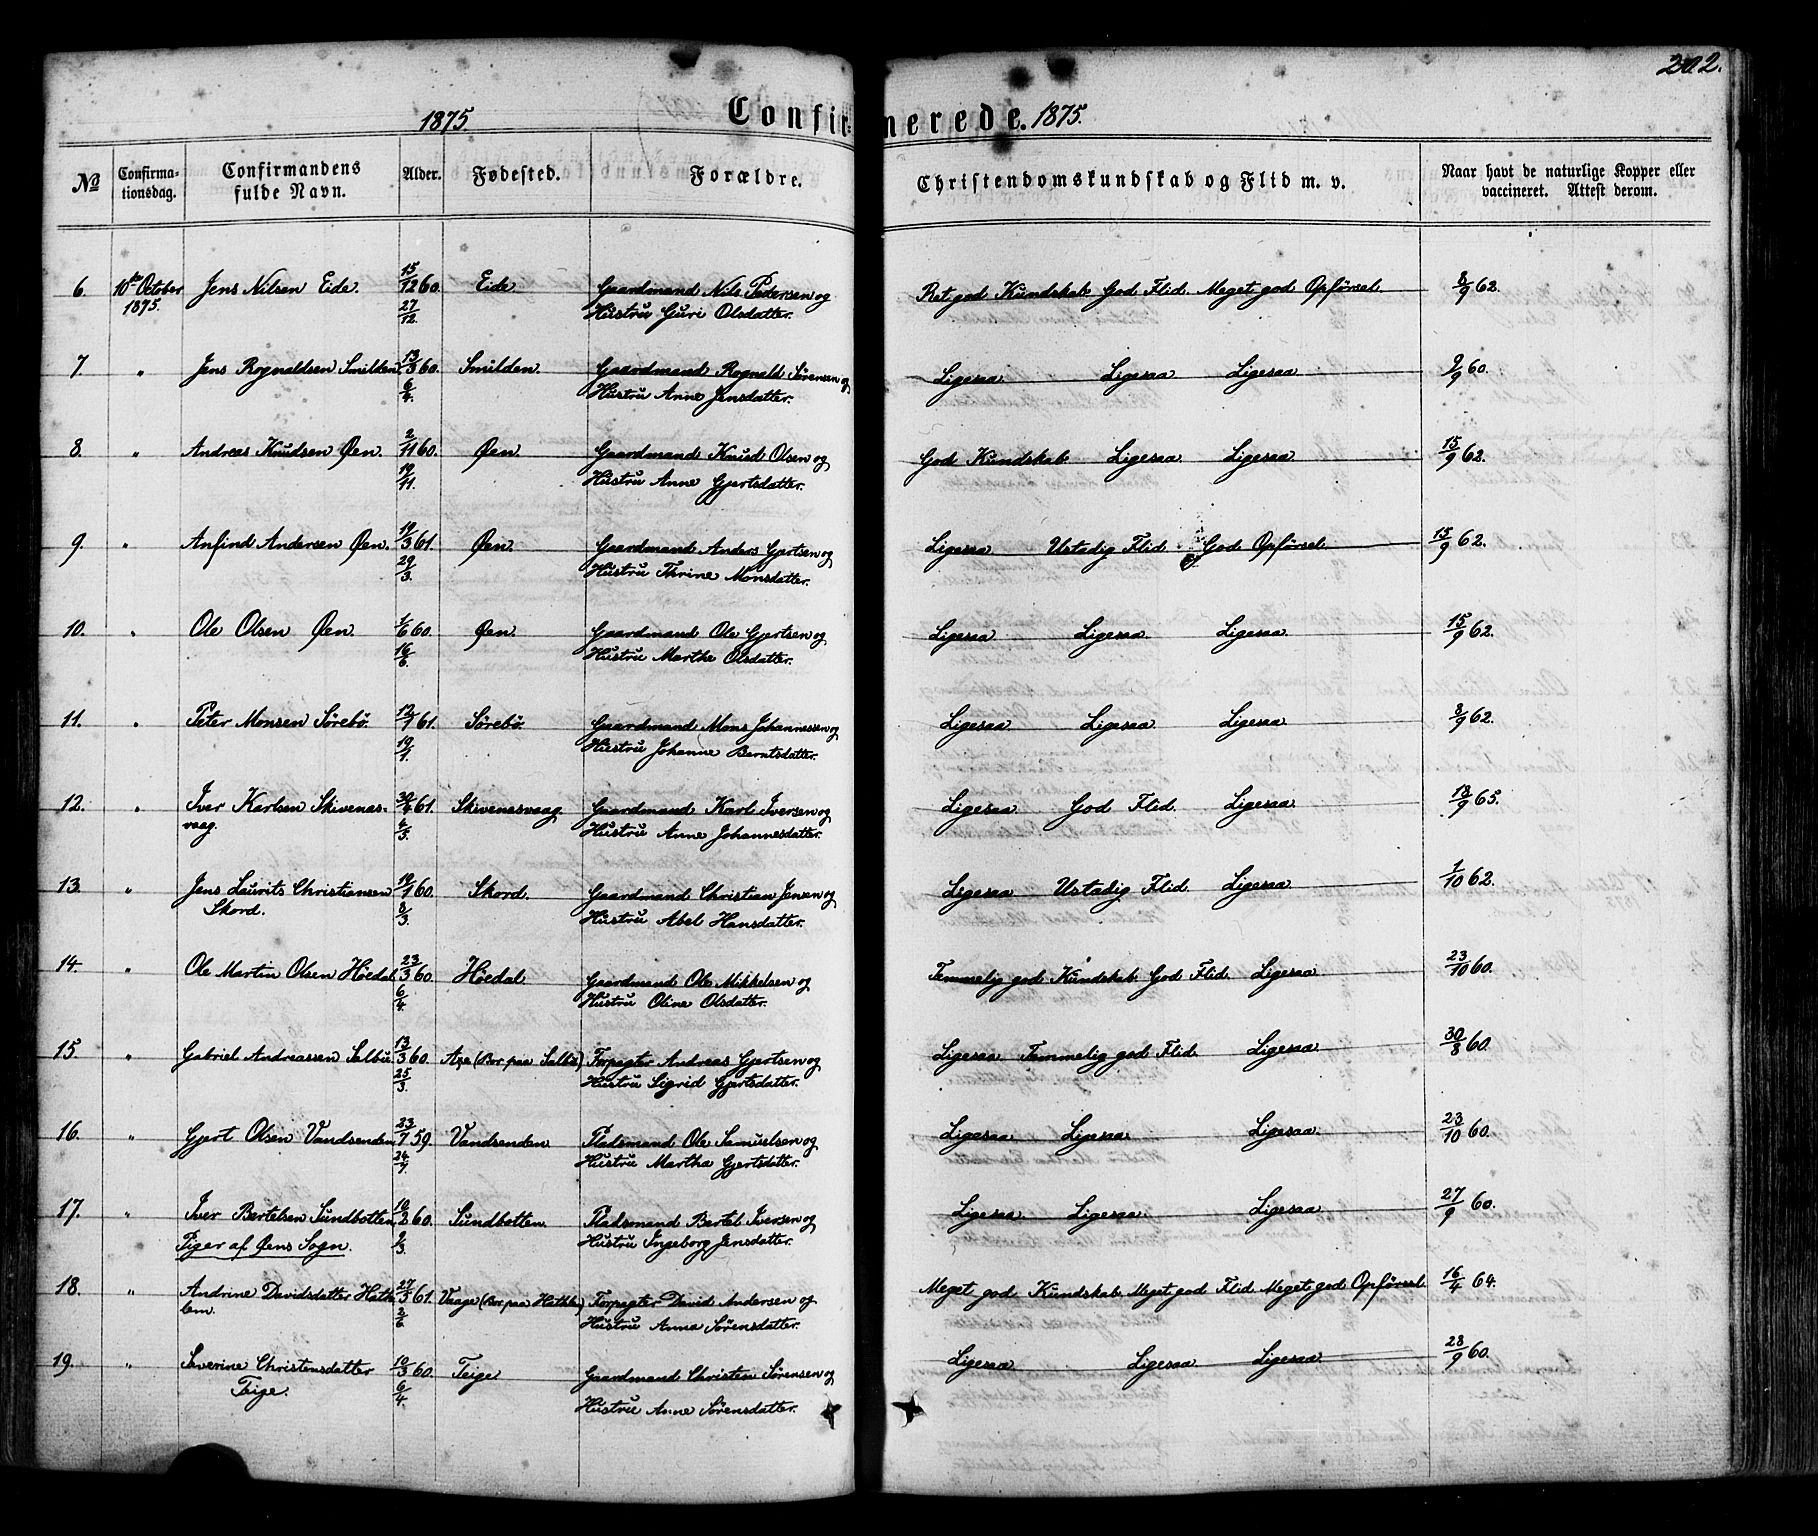 202.
1875. Confirmerede. 1875.
No Confirmationsdag. Confirmandens fulde Navn. Alder. Fødested. Forældre. Christendomskundskab og Flid m. v. Naar havt de naturlige Kopper eller vaccineret. Attest derom.
6. 10de October Jens Nilsen Eide. 15/12 60. Eide Gaardmand Nils Pedersen og Ret god Kundskab God Flid. Meget god Opførsel. 8/9 62.
1875. 27/12. Hustru Guri Olsdatter.
7. " Jens Rognaldsen Smilden. 13/3 60. Smilden. Gaardmand Rognald Sørensen og Ligesaa Ligesaa Ligesaa 9/9 60.
6/4. Hustru Anne Jensdatter.
8. " Andreas Knudsen Øen. 2/11 60. Øen Gaardmand Knud Olsen og God Kundskab Ligesaa. Ligesaa. 15/9 62.
19/11. Hustru Anne Gjertsdatter.
9. " Anfind Andersen Øen. 19/3 61. Øen. Gaardmand Anders Gjertsen og Ligesaa Ustadig Flid. God Opførsel 15/9 62.
29/3. Hustru Thrine Monsdatter.
10. " Ole Olsen Øen. 1/6 60. Øen. Gaardmand Ole Gjertsen og Ligesaa Ligesaa. Ligesaa. 15/9 62.
16/6. Hustru Marthe Olsdatter.
11. " Peter Monsen Sørebø. 12/1 61. Sørebø. Gaardmand Mons Johannessen og Ligesaa Ligesaa Ligesaa 8/9 62.
19/1. Hustru Johanne Berntsdatter.
12. " Iver Karlsen Skivenas- 30/4 61. Skivenasvaag. Gaardmand Karl Iversen og Ligesaa God Flid. Ligesaa. 18/9 65.
vaag. 4/5. Hustru Anne Johannesdatter.
13. " Jens Laurits Christiansen 19/1 60. Skord. Gaardmand Christian Jensen og Ligesaa Ustadig Flid. Ligesaa. 1/10 62.
Skord. 8/3. Hustru Abel Hansdatter.
14. " Ole Martin Olsen Høedal 23/3 60. Høedal Gaardmand Ole Mikkelsen og Temmelig god Kundskab God Flid. Ligesaa 23/10 60.
6/4. Hustru Oline Olsdatter.
15. " Gabriel Andreassen Salbu 13/3 60. Ase (Bor paa Salbu) Forpagter Andreas Gjertsen og Ligesaa Temmelig god Flid. Ligesaa 30/8 60.
25/3. Hustru Sigrid Gjertsdatter.
16. " Gjert Olsen Vandsenden 23/7 59. Vandsenden Pladsmand Ole Samuelsen og Ligesaa Ligesaa. Ligesaa. 23/10 60.
24/7. Hustru Martha Gjertsdatter.
17. " Iver Bertelsen Sundbotten 10/2 60. Sundbotten. Pladsmand Bertel Iversen og Ligesaa. Ligesaa. Ligesaa. 27/9 60.
Piger af Øens Sogn. 9/3. Hustru Ingeborg Jensdatter.
18. " Andrine Davidsdatter Hath- 27/5 61. Vaage (Bor paa Hathle.) Forpagter David Andersen og Meget god Kundskab Meget god Flid Meget god Opførsel 16/4 64.
lem. 2/6. Hustru Anna Sørensdatter.
19. " Severine Christensdatter 10/3 60. Teige Gaardmand Christen Sørensen og Ligesaa Ligesaa Ligesaa 28/9 60.
Teige. 6/4. Hustru Anne Sørensdatter.